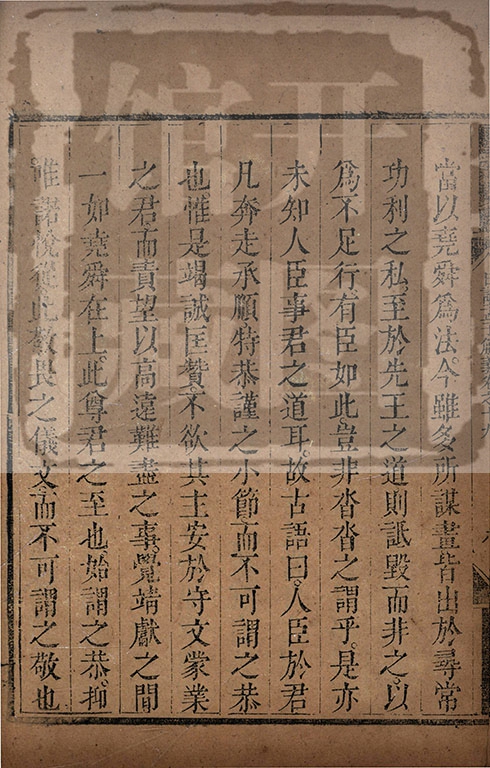 當以堯舜爲法。今雖多所謀畫皆出於尋常
功利之私。至於先王之道則詆毀而非之。以
爲不足行。有臣如此。豈非沓沓之謂乎。是亦
未知人臣事君之道耳。故古語曰。人臣於君
凡奔走承順特恭謹之小節而不可謂之恭
也惟是竭誠匡贊。不欲其主安於守文蒙業
之君而責望以高遠難盡之事。覺靖獻之間
一如堯舜在上。此尊君之至也。始謂之恭。抑
唯諾悅從此敬畏之儀文而不可謂之敬也